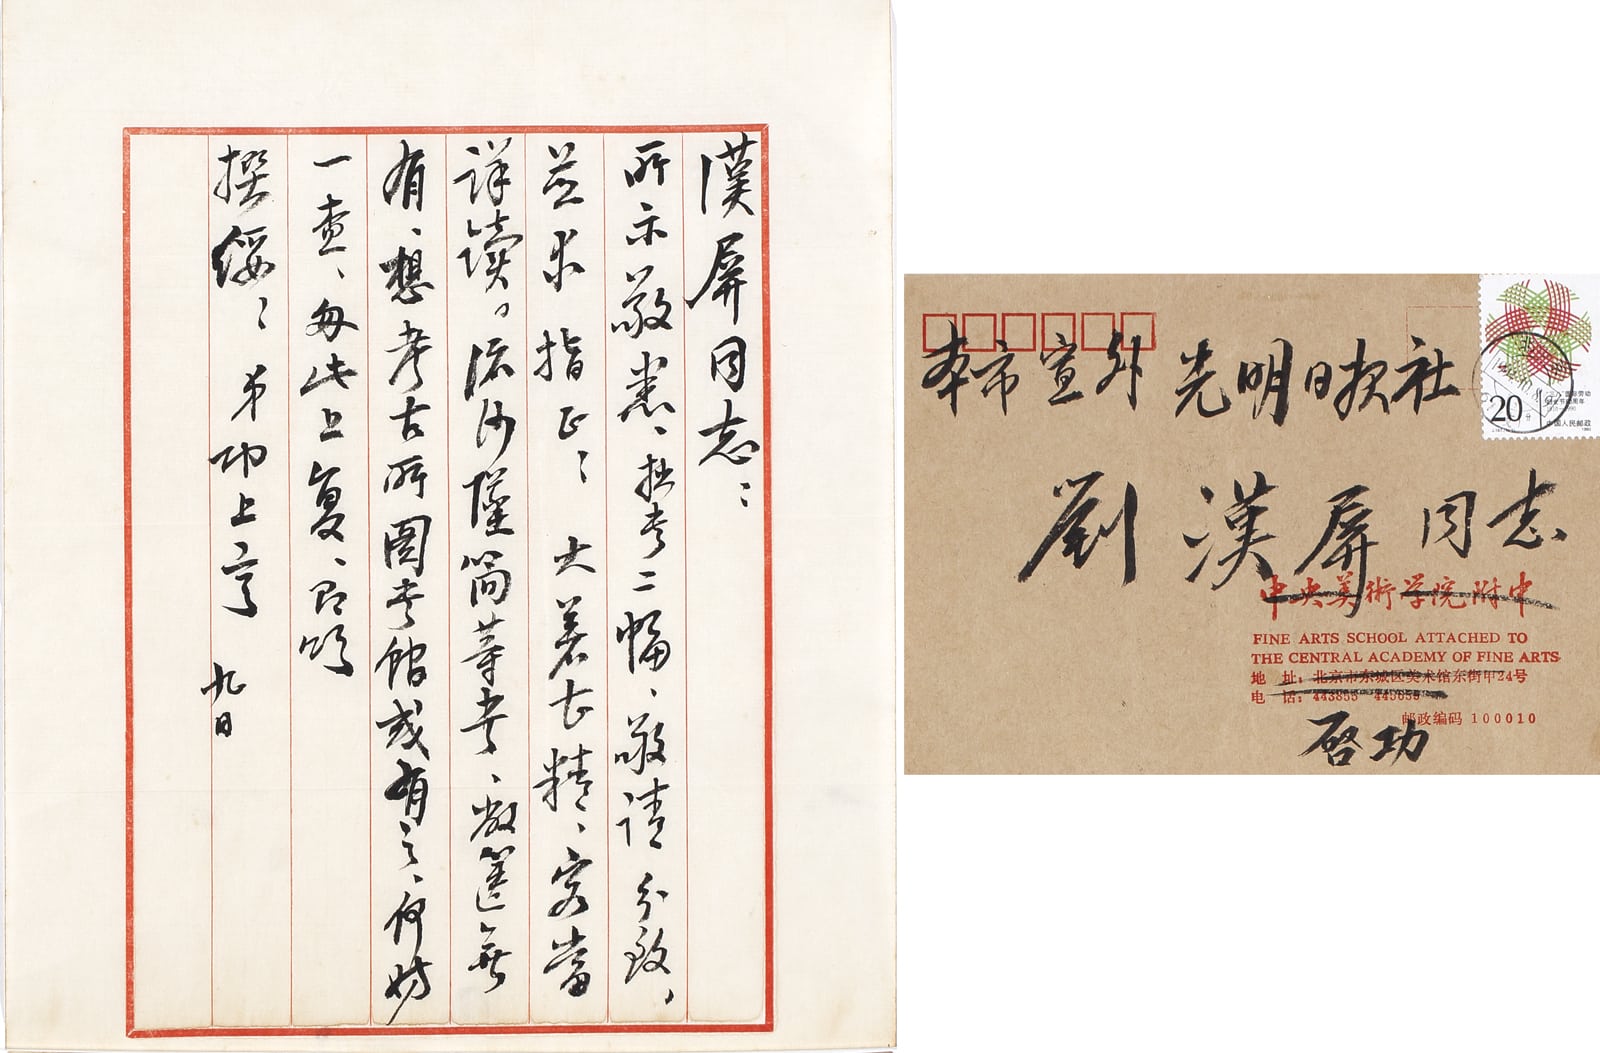 漢屏同志：
所示敬悉、拙书二幅、敬請分致，
並求指正： 大著甚精、容當
詳讀。流沙墜簡等书、敝篋無
有、想考古所圖书館或有之、何妨
一查、匆此上复、即頌
撰綏： 弟功上言 九日
本市宣外光明日报社
劉漢屏同志
中央美術学院附中
FINE ARTS SCHOOL ATTACHED TO
THE CENTRAL ACADEMY OF FINE ARTS
地 址：北京市东城区美术馆东街甲24号
电 话：443855 445655
邮政编码 100010
启功
20
中国人民邮政